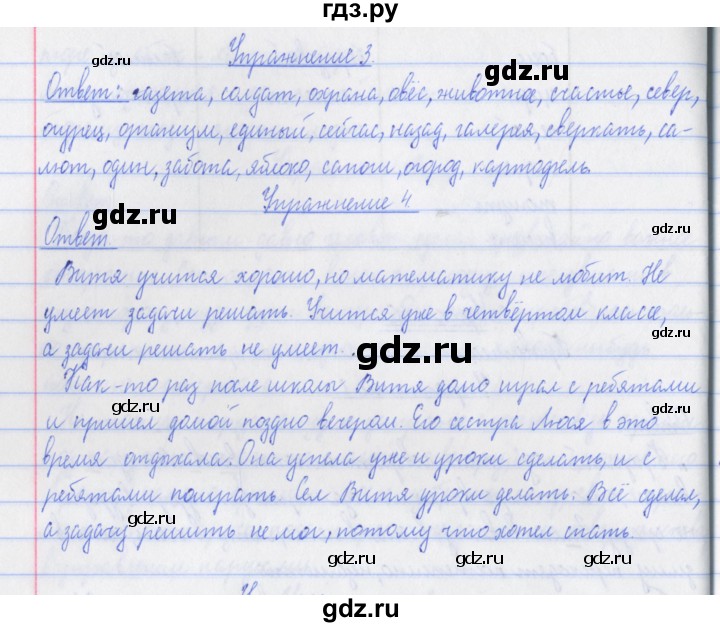 гдз.ру
Упражнение 3.
gdz.ru
gdz.ru
Ответ: газета, солдат, охрана, овёс, животное, счастье, север,
огурец, организм, единый, сейчас, назад, галерея, сверкать, са-
лют, один, забота, яблоко, сапоги, огород, картофель.
gdz.ru
Упражнение 4.
gdz.ru
Ответ.
Витя учится хорошо, но математику не любит. Не
умеет задачи решать. Учится уже в четвёртом классе,
gdz.ru
а задачи решать не умеет.
gdz.ru
Как-то раз после школы Витя долго играл с ребятами
gdz.ru
gdz.ru
и пришёл домой поздно вечером. Его сестра Люся в это
время отдыхала. Она успела уже и уроки сделать, и с
ребятами поиграть. Сел Витя уроки делать. Всё сделал,
gdz.ru
а задачу решить не мог, потому что хотел спать.
gdz.ru
gdz.ru
gdz.ru
gdz.ru